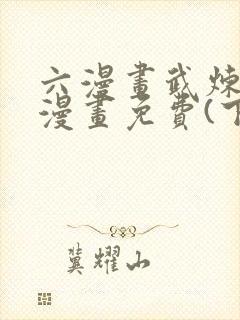 六漫畫武炼
漫畫免費(下
冀耀山